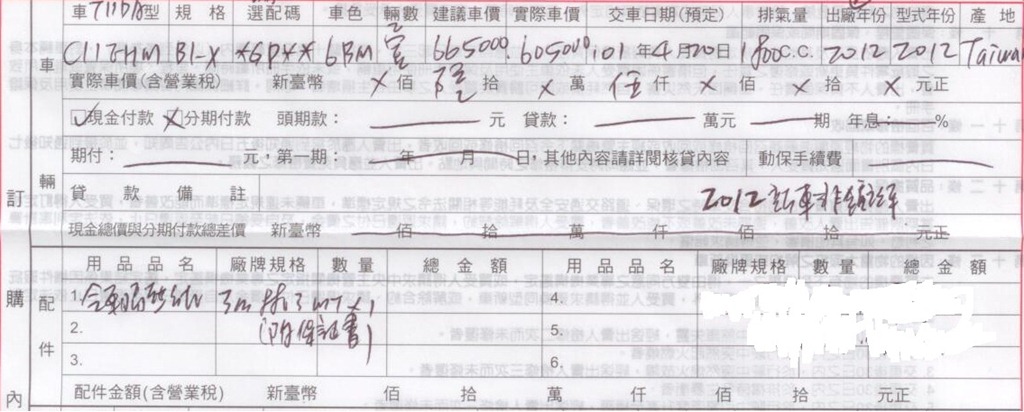 車TIIDA型 規格 選配碼 車色 輛數 建議車價 實際車價 交車日期(預定) 排氣量 出廠年份 型式年份 產地
C11THM B1-X *GP** 6BM 壹 665000. 605000. 101年4月20日 1800C.C. 2012 2012 Taiwan
實際車價(含營業稅) 新臺幣 ×佰 陸拾 ×萬 伍仟 ×佰 ×拾 ×元正
現金付款 分期付款 頭期款: 元 貸款: 萬元 期 年息: %
期付: 元,第一期: 年 月 日,其他內容請詳閱核貸內容 動保手續費
貸款備註 2012新車非
現金總價與分期付款總差價 新臺幣 佰 拾 萬 仟 佰 拾 元正
用品品名 廠牌規格 數量 總金額 用品品名 廠牌規格 數量 總金額
1. 全車隔熱紙 3m 4.
2. (附保証書) 5.
3. 6.
配件金額(含營業稅) 新臺幣 佰 拾 萬 仟 佰 拾 元正
車
輛
配
件
訂
購
內